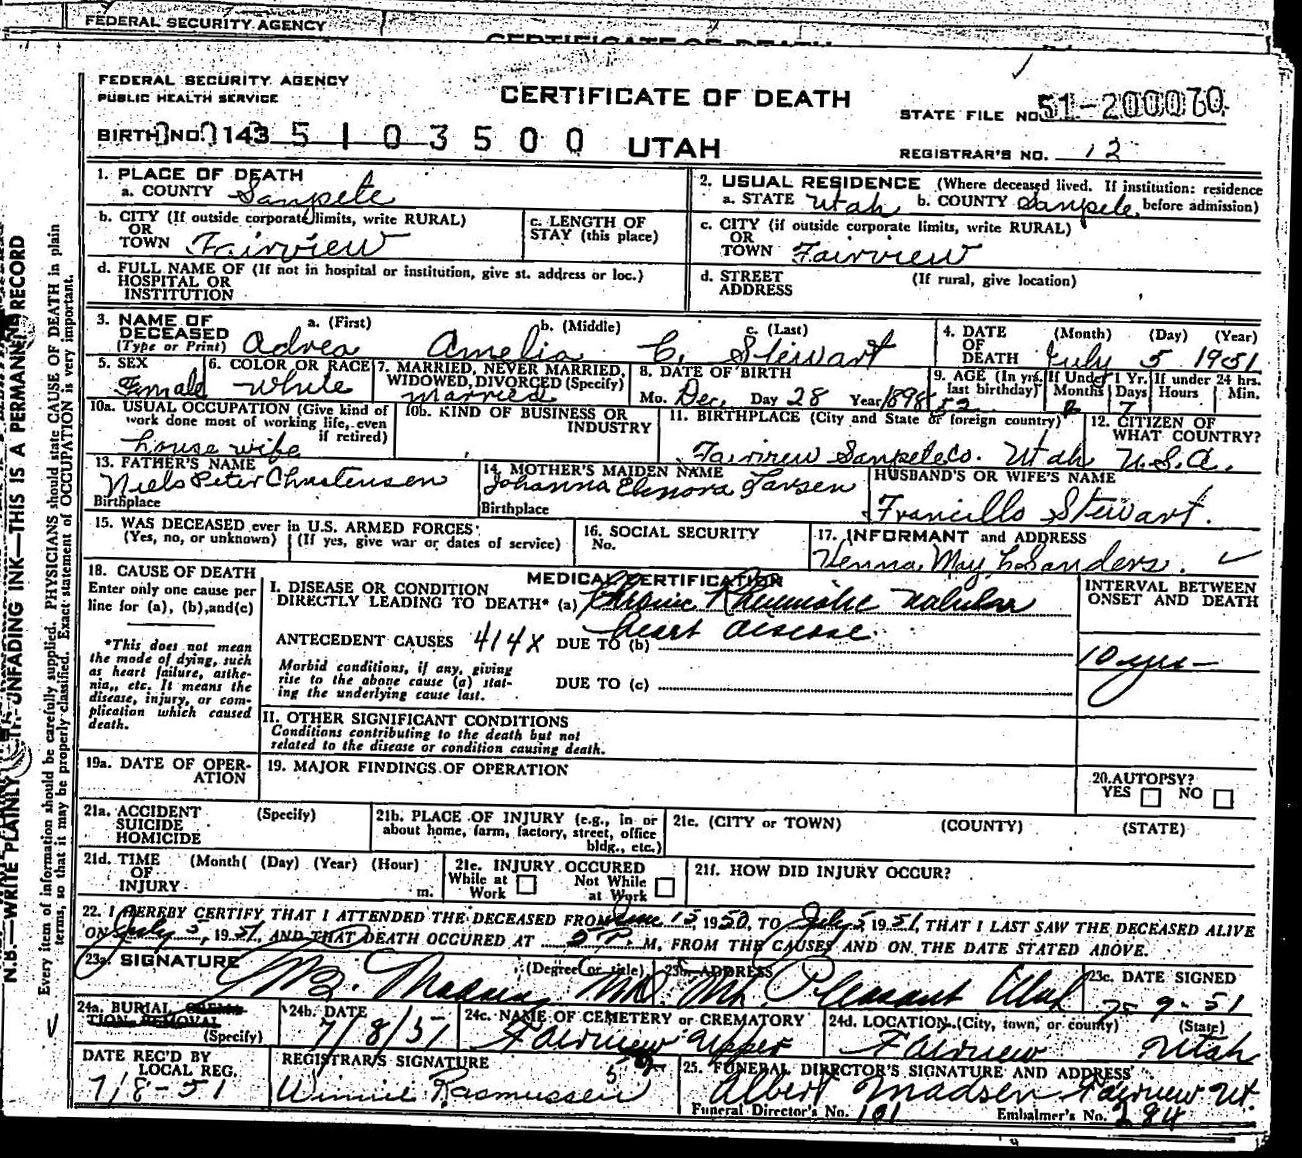 FEDERAL SECURITY AGENCY
CERTIFICATE OF DEATH
FEDERAL SECURITY AGENCY
PUBLIC HEALTH SERVICE
CERTIFICATE OF DEATH
STATE FILE NO. 51-200070
BIRTH NO. 143 5 1 0 3 5 0 0 UTAH
REGISTRAR'S NO. 12
1. PLACE OF DEATH
a. COUNTY Sanpete
2. USUAL RESIDENCE (Where deceased lived. If institution: residence
a. STATE Utah b. COUNTY Sanpete before admission)
b. CITY (If outside corporate limits, write RURAL)
OR
TOWN Fairview
c. LENGTH OF
STAY (this place)
c. CITY (if outside corporate limits, write RURAL)
OR
TOWN Fairview
d. FULL NAME OF (If not in hospital or institution, give st. address or loc.)
HOSPITAL OR
INSTITUTION
d. STREET (If rural, give location)
ADDRESS
3. NAME OF a. (First) b. (Middle) c. (Last)
DECEASED
(Type or Print) Adrea Amelia C. Stewart
4. DATE (Month) (Day) (Year)
OF
DEATH July 5 1951
5. SEX
Female
6. COLOR OR RACE
white
7. MARRIED, NEVER MARRIED,
WIDOWED, DIVORCED (Specify)
married
8. DATE OF BIRTH
Mo. Dec. Day 28 Year 1898
9. AGE (In yrs. last birthday) 52
If Under 1 Yr. Months Days 7
If under 24 hrs. Hours Min.
10a. USUAL OCCUPATION (Give kind of
work done most of working life, even
if retired)
house wife
10b. KIND OF BUSINESS OR
INDUSTRY
11. BIRTHPLACE (City and State or foreign country)
Fairview Sanpete co. Utah
12. CITIZEN OF
WHAT COUNTRY?
U.S.A.
13. FATHER'S NAME
Niels Peter Christensen
Birthplace
14. MOTHER'S MAIDEN NAME
Johanna Elenora Larsen
Birthplace
HUSBAND'S OR WIFE'S NAME
Francillo Stewart.
15. WAS DECEASED ever in U.S. ARMED FORCES?
(Yes, no, or unknown) (If yes, give war or dates of service)
16. SOCIAL SECURITY
No.
17. INFORMANT and ADDRESS
Venna May Sanders.
18. CAUSE OF DEATH
Enter only one cause per
line for (a), (b), and (c)
*This does not mean
the mode of dying, such
as heart failure, asthe-
nia, etc. It means the
disease, injury, or com-
plication which caused
death.
MEDICAL CERTIFICATION
I. DISEASE OR CONDITION
DIRECTLY LEADING TO DEATH* (a) Chronic Rheumatic valvular
heart disease
ANTECEDENT CAUSES 414X DUE TO (b)
Morbid conditions, if any, giving
rise to the above cause (a) stat-
ing the underlying cause last.
DUE TO (c)
INTERVAL BETWEEN
ONSET AND DEATH
10 yrs
II. OTHER SIGNIFICANT CONDITIONS
Conditions contributing to the death but not
related to the disease or condition causing death.
19a. DATE OF OPER-
ATION
19. MAJOR FINDINGS OF OPERATION
20. AUTOPSY?
YES NO
21a. ACCIDENT (Specify)
SUICIDE
HOMICIDE
21b. PLACE OF INJURY (e.g., in or
about home, farm, factory, street, office
bldg., etc.)
21c. (CITY or TOWN) (COUNTY) (STATE)
21d. TIME (Month) (Day) (Year) (Hour)
OF
INJURY m.
21e. INJURY OCCURED
While at Work Not While at Work
21f. HOW DID INJURY OCCUR?
22. I HEREBY CERTIFY THAT I ATTENDED THE DECEASED FROM June 15, 1950, TO July 5 1951, THAT I LAST SAW THE DECEASED ALIVE
ON July 5, 1951, AND THAT DEATH OCCURED AT M, FROM THE CAUSES AND ON THE DATE STATED ABOVE.
23a. SIGNATURE (Degree or title) Madsen MD.
23b. ADDRESS Mt. Pleasant Utah
23c. DATE SIGNED
9-51
24a. BURIAL CREMA-
TION REMOVAL
(Specify)
24b. DATE
7/8/51
24c. NAME OF CEMETERY or CREMATORY
Fairview Upper
24d. LOCATION (City, town, or county) (State)
Fairview Utah
DATE REC'D BY
LOCAL REG.
7/8-51
REGISTRAR'S SIGNATURE
Winnie Rasmussen
25. FUNERAL DIRECTOR'S SIGNATURE AND ADDRESS
Albert Madsen Fairview Ut.
Funeral Director's No. 101 Embalmer's No. 284
N.B.—WRITE PLAINLY UNFADING INK—THIS IS A PERMANENT RECORD
Every item of information should be carefully supplied. PHYSICIANS should state CAUSE OF DEATH in plain
terms, so that it may be properly classified. Exact statement of OCCUPATION is very important.